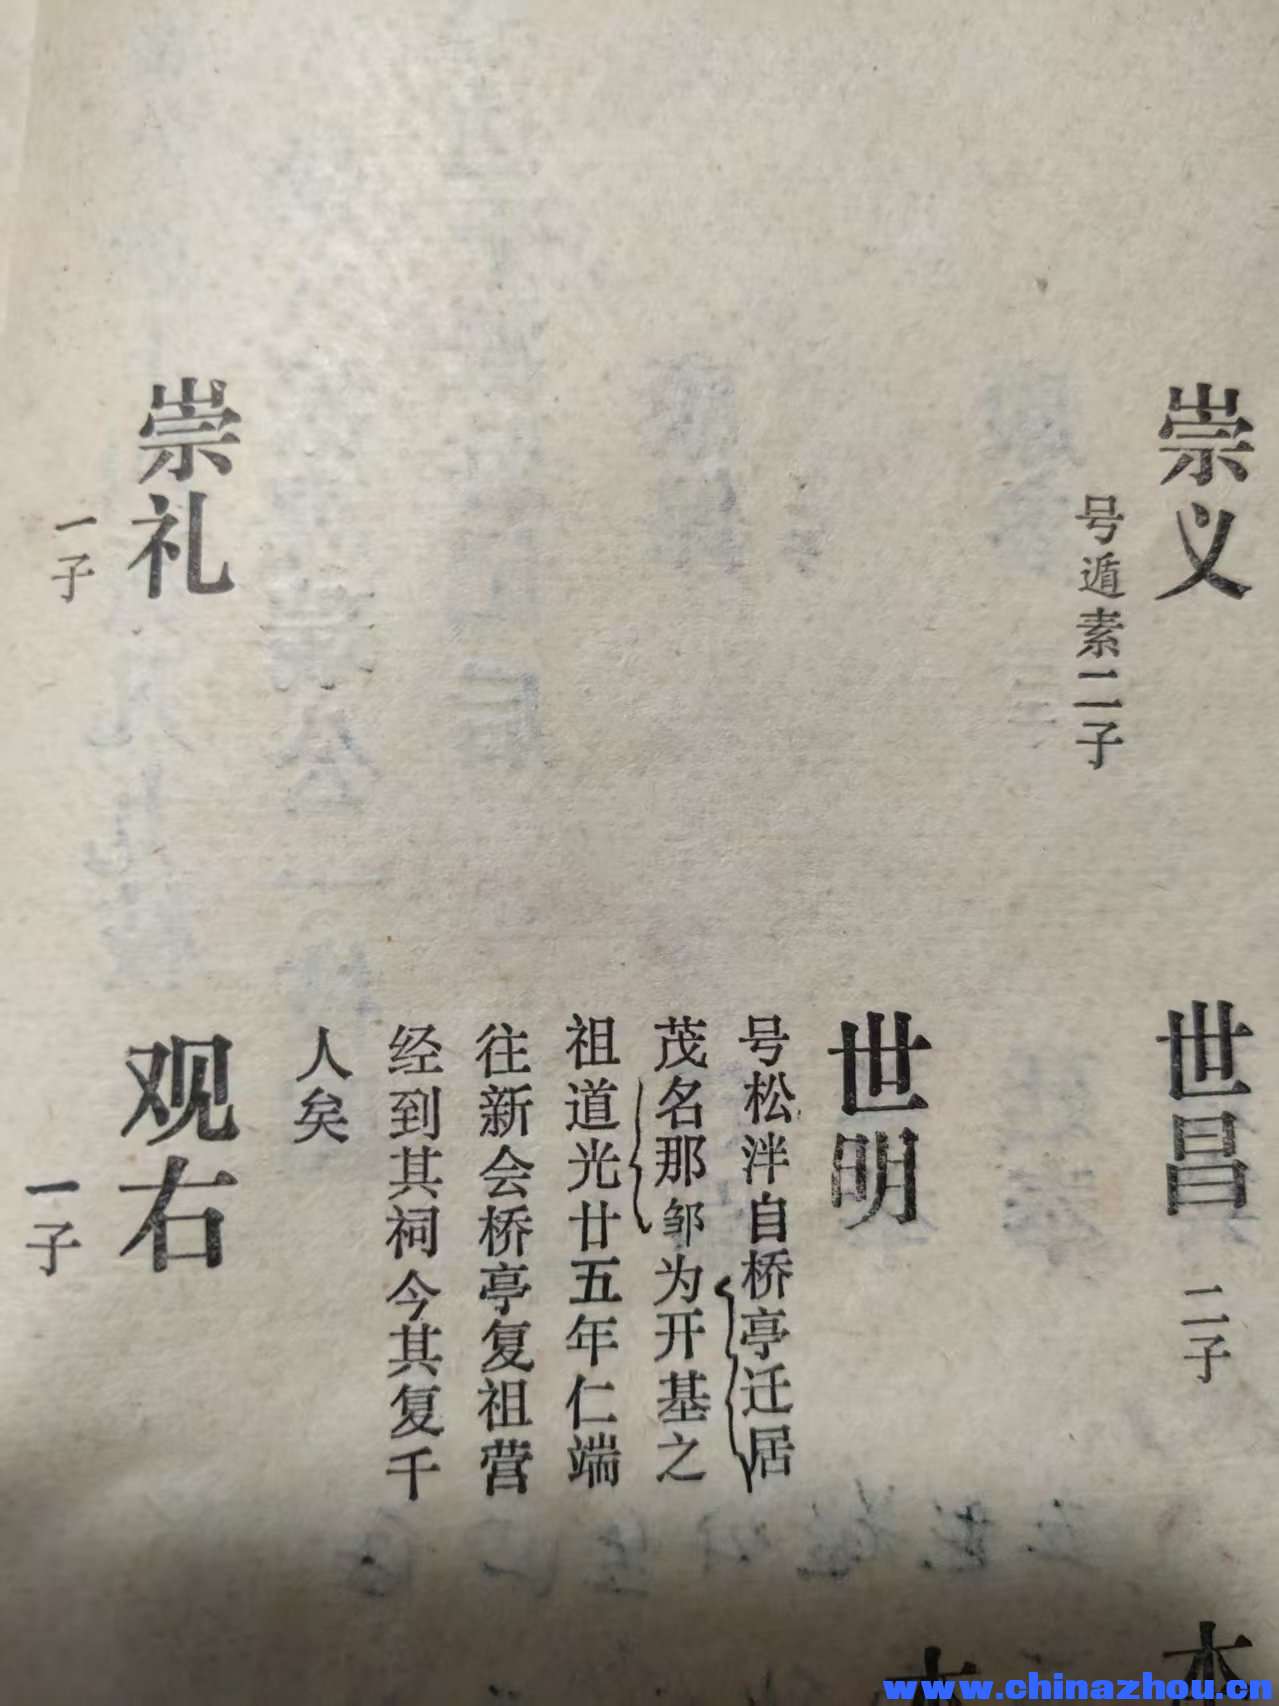 崇义
号遁素二子
崇礼
一子
世昌
二子
世明
号松泮自桥亭迁居
茂名那邹为开基之
祖道光廿五年仁端
往新会桥亭复祖营
经到其祠今其复千
人矣
观右
一子
www.chinazhou.cn